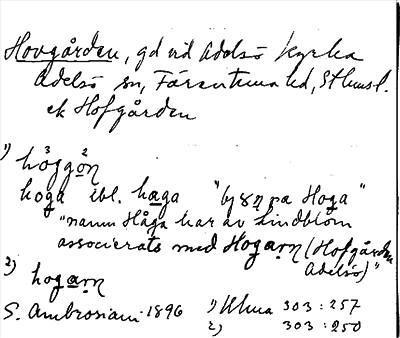 Hovgården, gd vid Adelsö kyrka
Adelsö sn, Färentuna hd, Sthmsl.
ek Hofgården
1) hǒggòn
hoga ibl. hæga "by på Hoga"
"namn Håga har av Lindblom
associerats med Hogarn (Hofgården
Adelsö)"
2) hogarn
S. Ambrosiani 1896 1) Ulma 303:257
2) 303:250